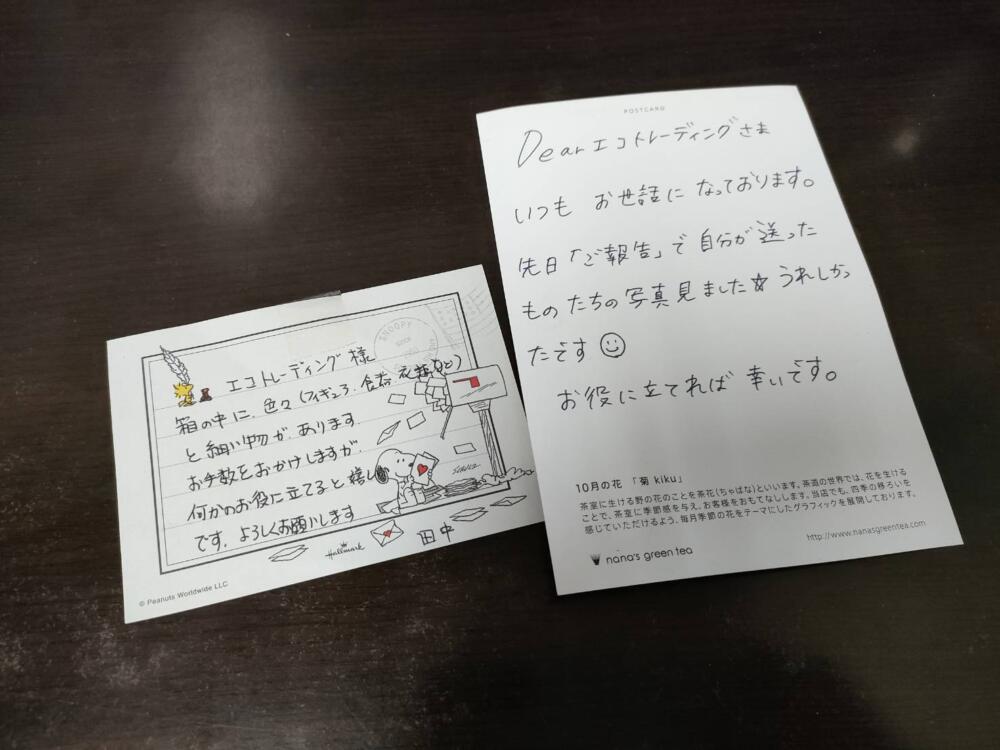 エコトレーディング様
箱の中に、色々(フィギュア、食器、衣類など)
と細い物が、あります。
お手数をおかけしますが、
何かのお役に立てると嬉しい
です。よろしくお願いします
田中
SNOOPY
Hallmark
© Peanuts Worldwide LLC
POSTCARD
Dear エコトレーディングさま
いつも お世話に なっております。
先日「ご報告」で 自分が 送った
ものたちの写真見ました☆ うれしかっ
たです ☺
お役に立てれば 幸いです。
10月の花 「菊 kiku」
茶室に生ける野の花のことを茶花(ちゃばな)といいます。茶道の世界では、花を生ける
ことで、茶室に季節感を与え、お客様をおもてなしします。当店でも、四季の移ろいを
感じていただけるよう、毎月季節の花をテーマにしたグラフィックを展開しております。
nana's green tea
http://www.nanasgreentea.com